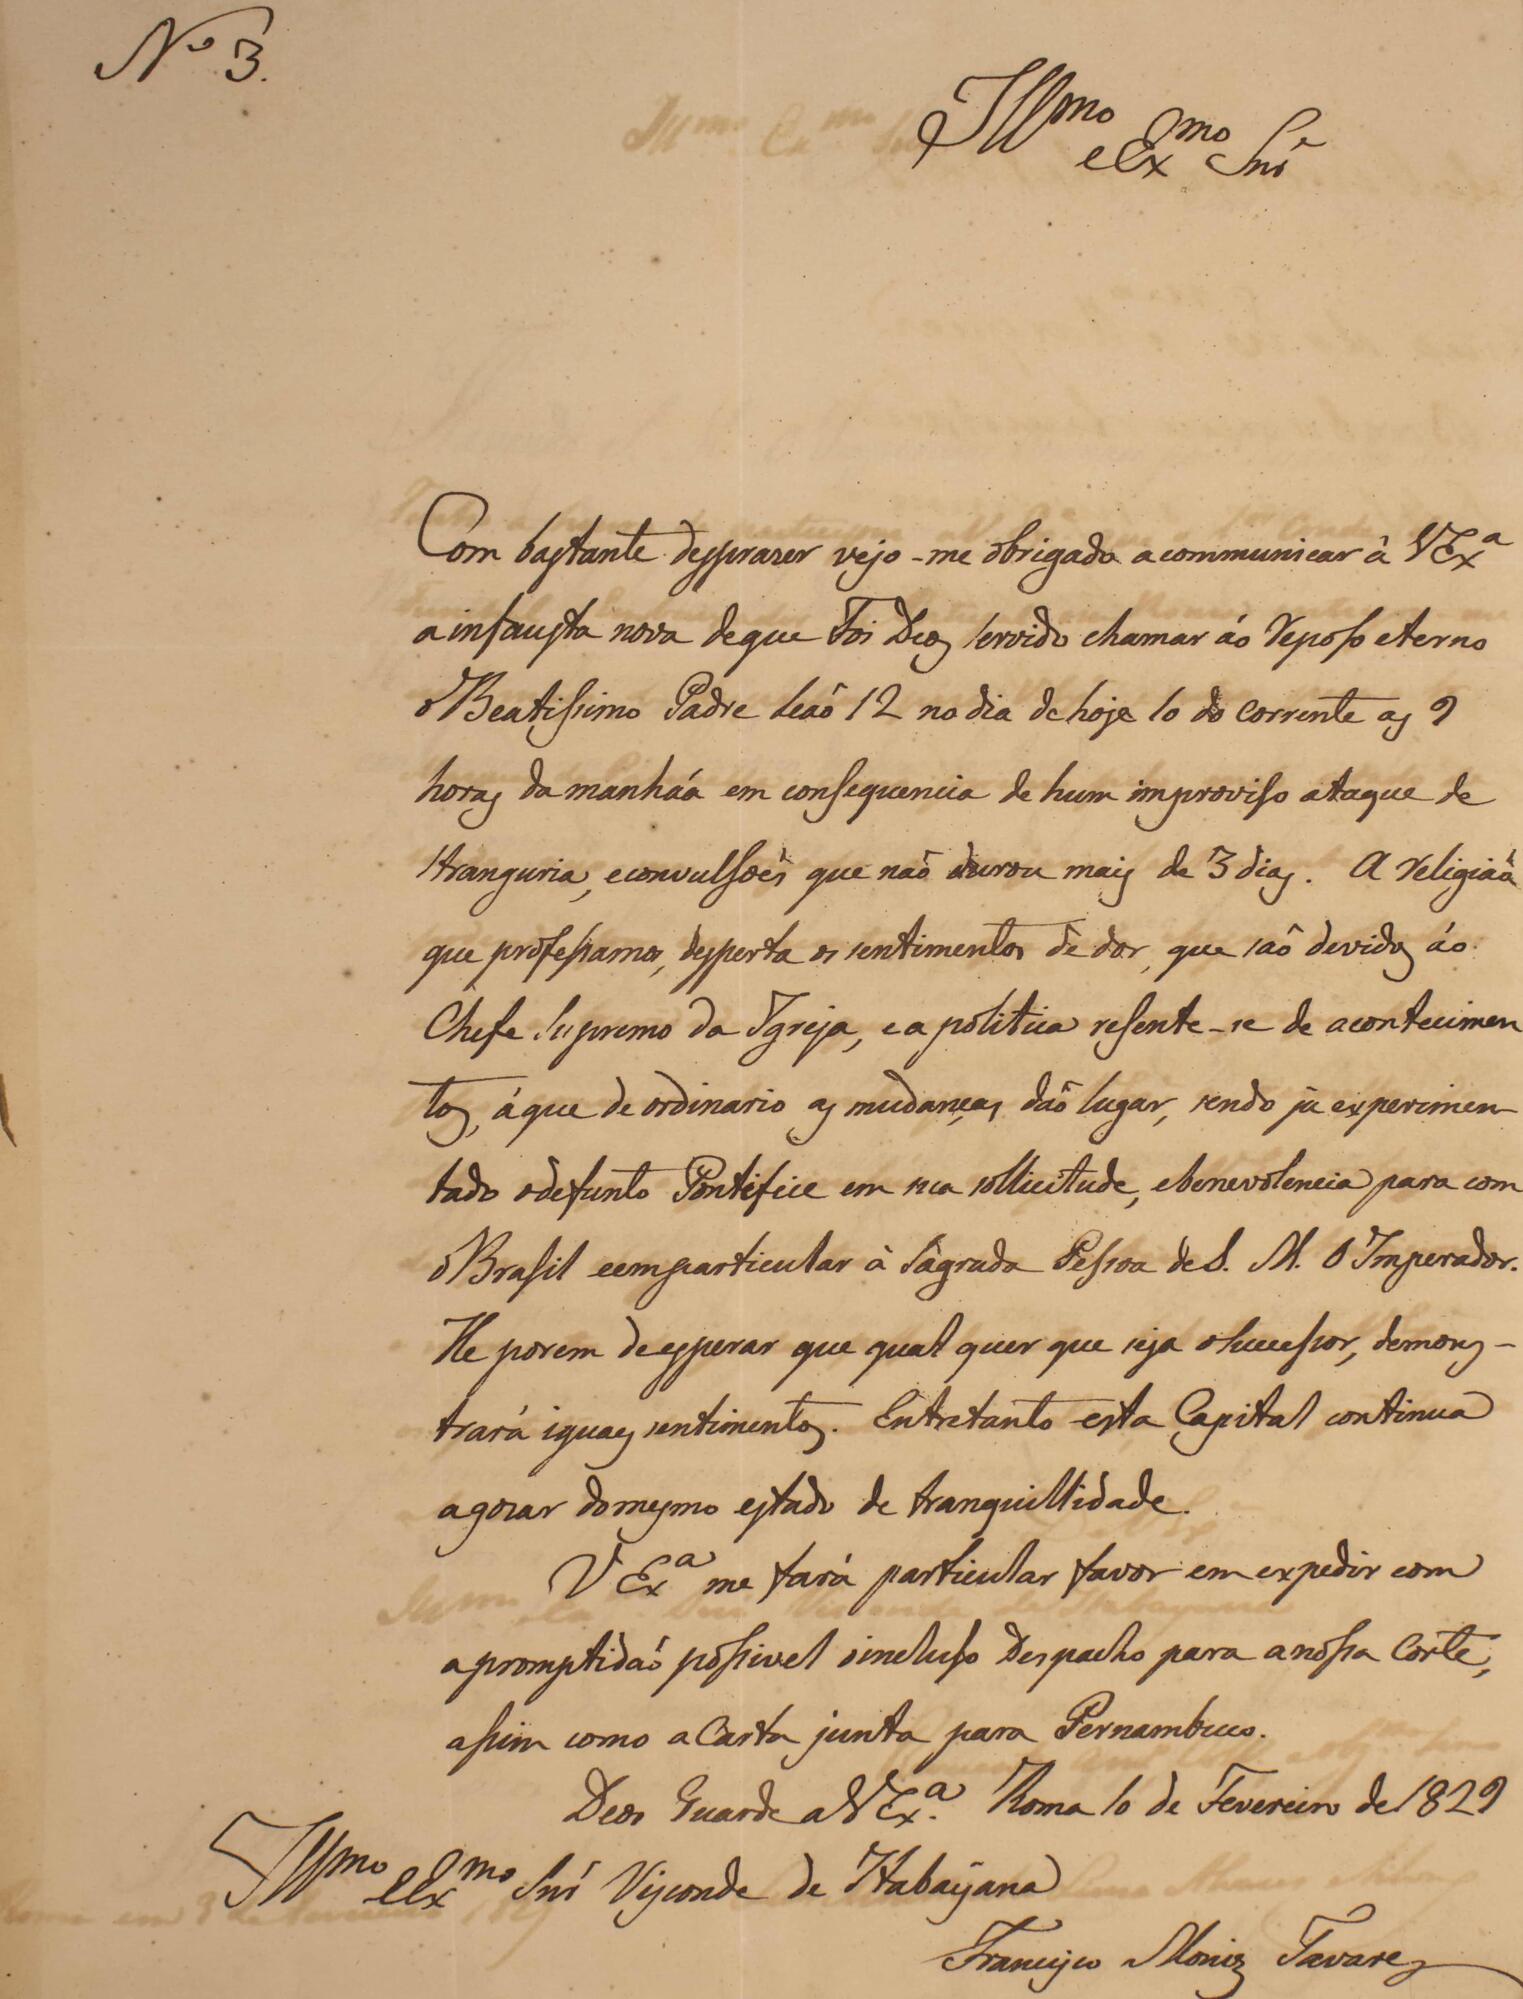 Nº 3.
Illmo e Exmo Snr
Com bastante desprazer vejo-me obrigado a communicar à V Exa
a infausta nova de que Foi Deos servido chamar áo reposo eterno
o Beatissimo Padre Leaõ 12 no dia de hoje 10 do corrente as 9
horas da manháa em consequencia de hum improviso ataque de
stranguria, e convulsoẽs que naõ durou mais de 3 dias. A religiaõ
que professamos, desperta os sentimentos de dor, que saõ devidos áo
Chefe Supremo da Igreja, e a politica resente-se de acontecimen
tos, á que de ordinario as mudanças daõ lugar, sendo já experimen-
tado o defunto Pontifice em sua sollicitude, e benevolencia para com
o Brasil e em particular à Sagrada Pessoa de S. M. O Imperador.
He porem de esperar que qual quer que seja o successor, demons-
trará iguaes sentimentos. Entretanto esta Capital continua
a gozar do mesmo estado de tranquillidade.
V Exa me fará particular favor em expedir com
a promptidaõ possivel o incluso Despacho para a nossa Corte,
assim como a Carta junta para Pernambuco.
Deos Guarde a V Exa. Roma 10 de Fevereiro de 1829
Illmo e Exmo Snr Visconde de Itabayana
Francisco Moniz Tavares